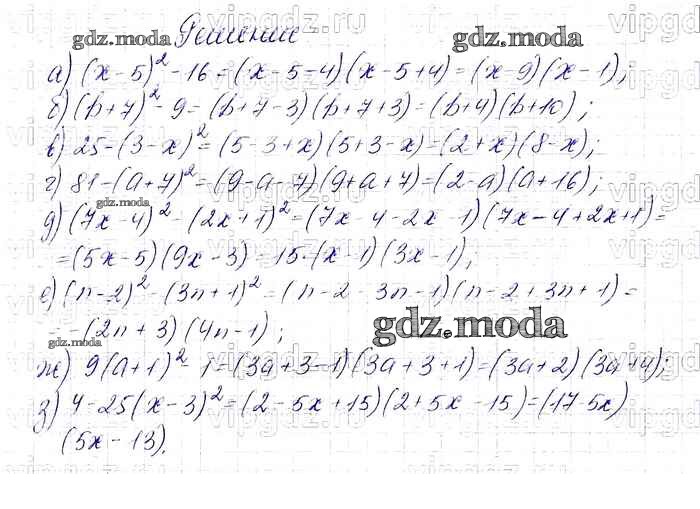 Решение
а) (x-5)² - 16 = (x-5-4)(x-5+4) = (x-9)(x-1);
б) (b+7)² - 9 = (b+7-3)(b+7+3) = (b+4)(b+10);
в) 25-(3-x)² = (5-3+x)(5+3-x) = (2+x)(8-x);
г) 81-(a+7)² = (9-a-7)(9+a+7) = (2-a)(a+16);
д) (7x-4)² - (2x+1)² = (7x-4-2x-1)(7x-4+2x+1) =
= (5x-5)(9x-3) = 15·(x-1)(3x-1);
е) (n-2)² - (3n+1)² = (n-2-3n-1)(n-2+3n+1) =
= -(2n+3)(4n-1);
ж) 9(a+1)² - 1 = (3a+3-1)(3a+3+1) = (3a+2)(3a+4);
з) 4-25(x-3)² = (2-5x+15)(2+5x-15) = (17-5x)
(5x-13).
gdz.moda
gdz.moda
gdz.moda
gdz.moda
gdz.moda